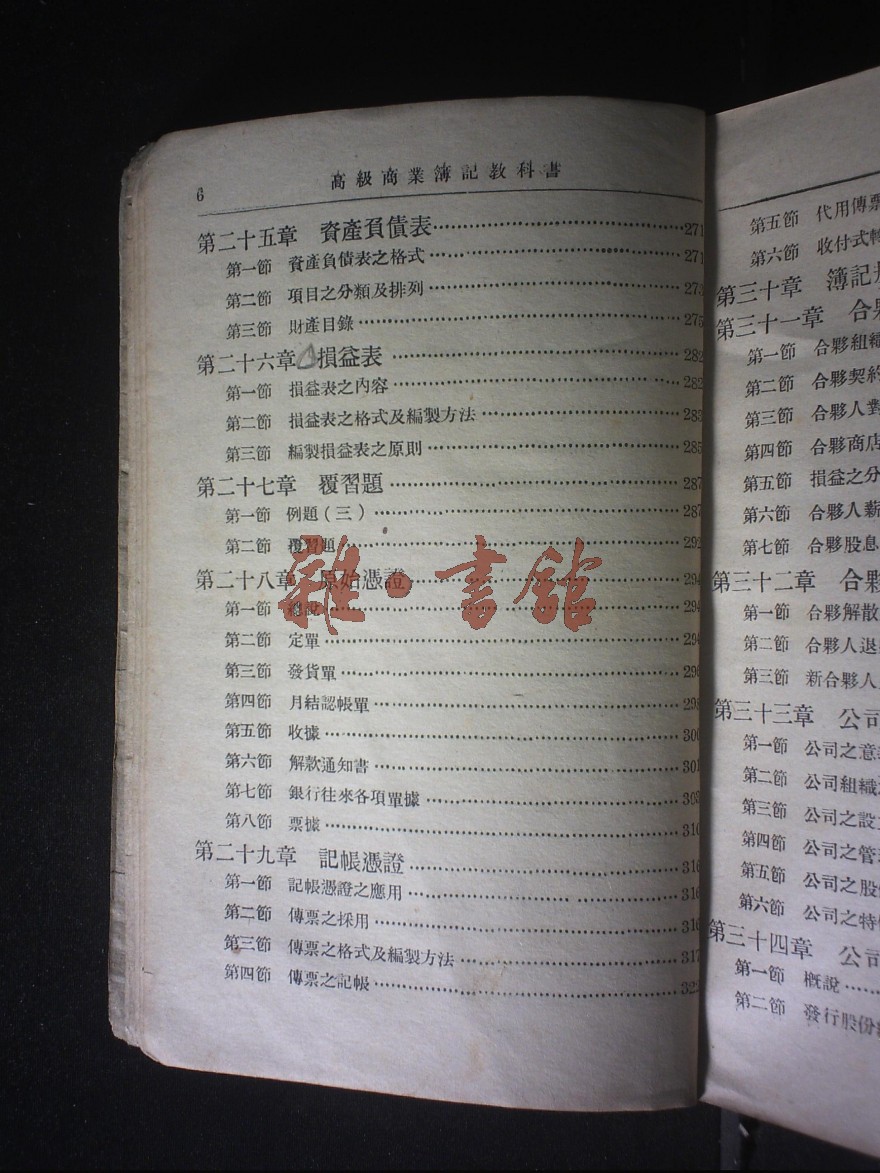 6
高級商業簿記教科書
第二十五章 資產負債表……271
第一節 資產負債表之格式……271
第二節 項目之分類及排列……273
第三節 財產目錄……275
第二十六章 損益表……282
第一節 損益表之內容……282
第二節 損益表之格式及編製方法……283
第三節 編製損益表之原則……285
第二十七章 覆習題……287
第一節 例題(三)……287
第二節 覆習題……292
第二十八章 原始憑證……294
第一節 總說……294
第二節 定單……294
第三節 發貨單……296
第四節 月結認帳單……298
第五節 收據……300
第六節 解款通知書……301
第七節 銀行往來各項單據……303
第八節 票據……310
第二十九章 記帳憑證……316
第一節 記帳憑證之應用……316
第二節 傳票之採用……316
第三節 傳票之格式及編製方法……317
第四節 傳票之記帳……322
雜·書館
第五節 代用傳票
第六節 收付式轉
第三十章 簿記
第三十一章 合夥
第一節 合夥組織
第二節 合夥契約
第三節 合夥人對
第四節 合夥商店
第五節 損益之分
第六節 合夥人薪
第七節 合夥股息
第三十二章 合夥
第一節 合夥解散
第二節 合夥人退
第三節 新合夥人
第三十三章 公司
第一節 公司之意
第二節 公司組織
第三節 公司之設
第四節 公司之管
第五節 公司之股
第六節 公司之特
第三十四章 公司
第一節 概說……
第二節 發行股份